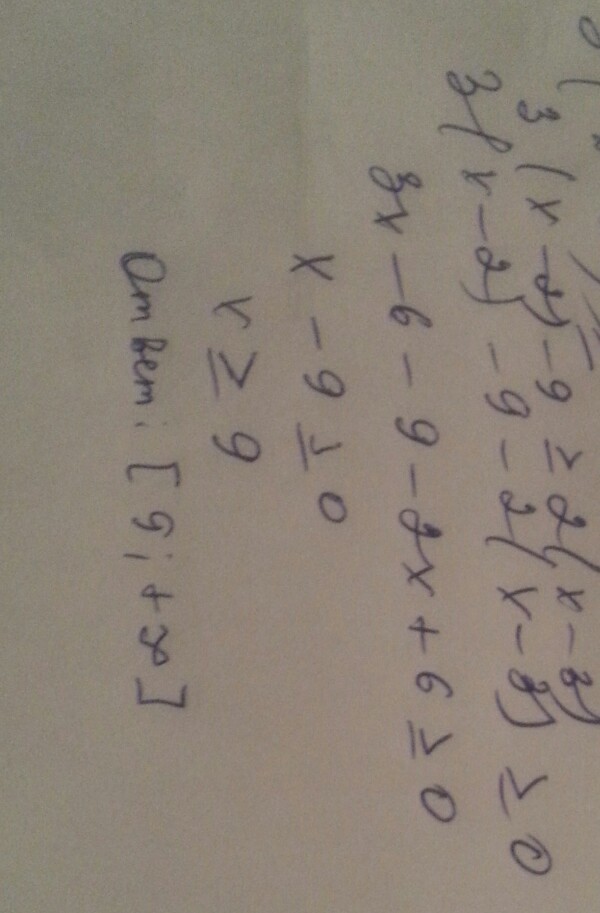 3(x-2)-9≥2(x-3)
3(x-2)-9-2(x-3)≥0
3x-6-9-2x+6≥0
x-9≥0
x≥9
Ответ: [9;+∞]